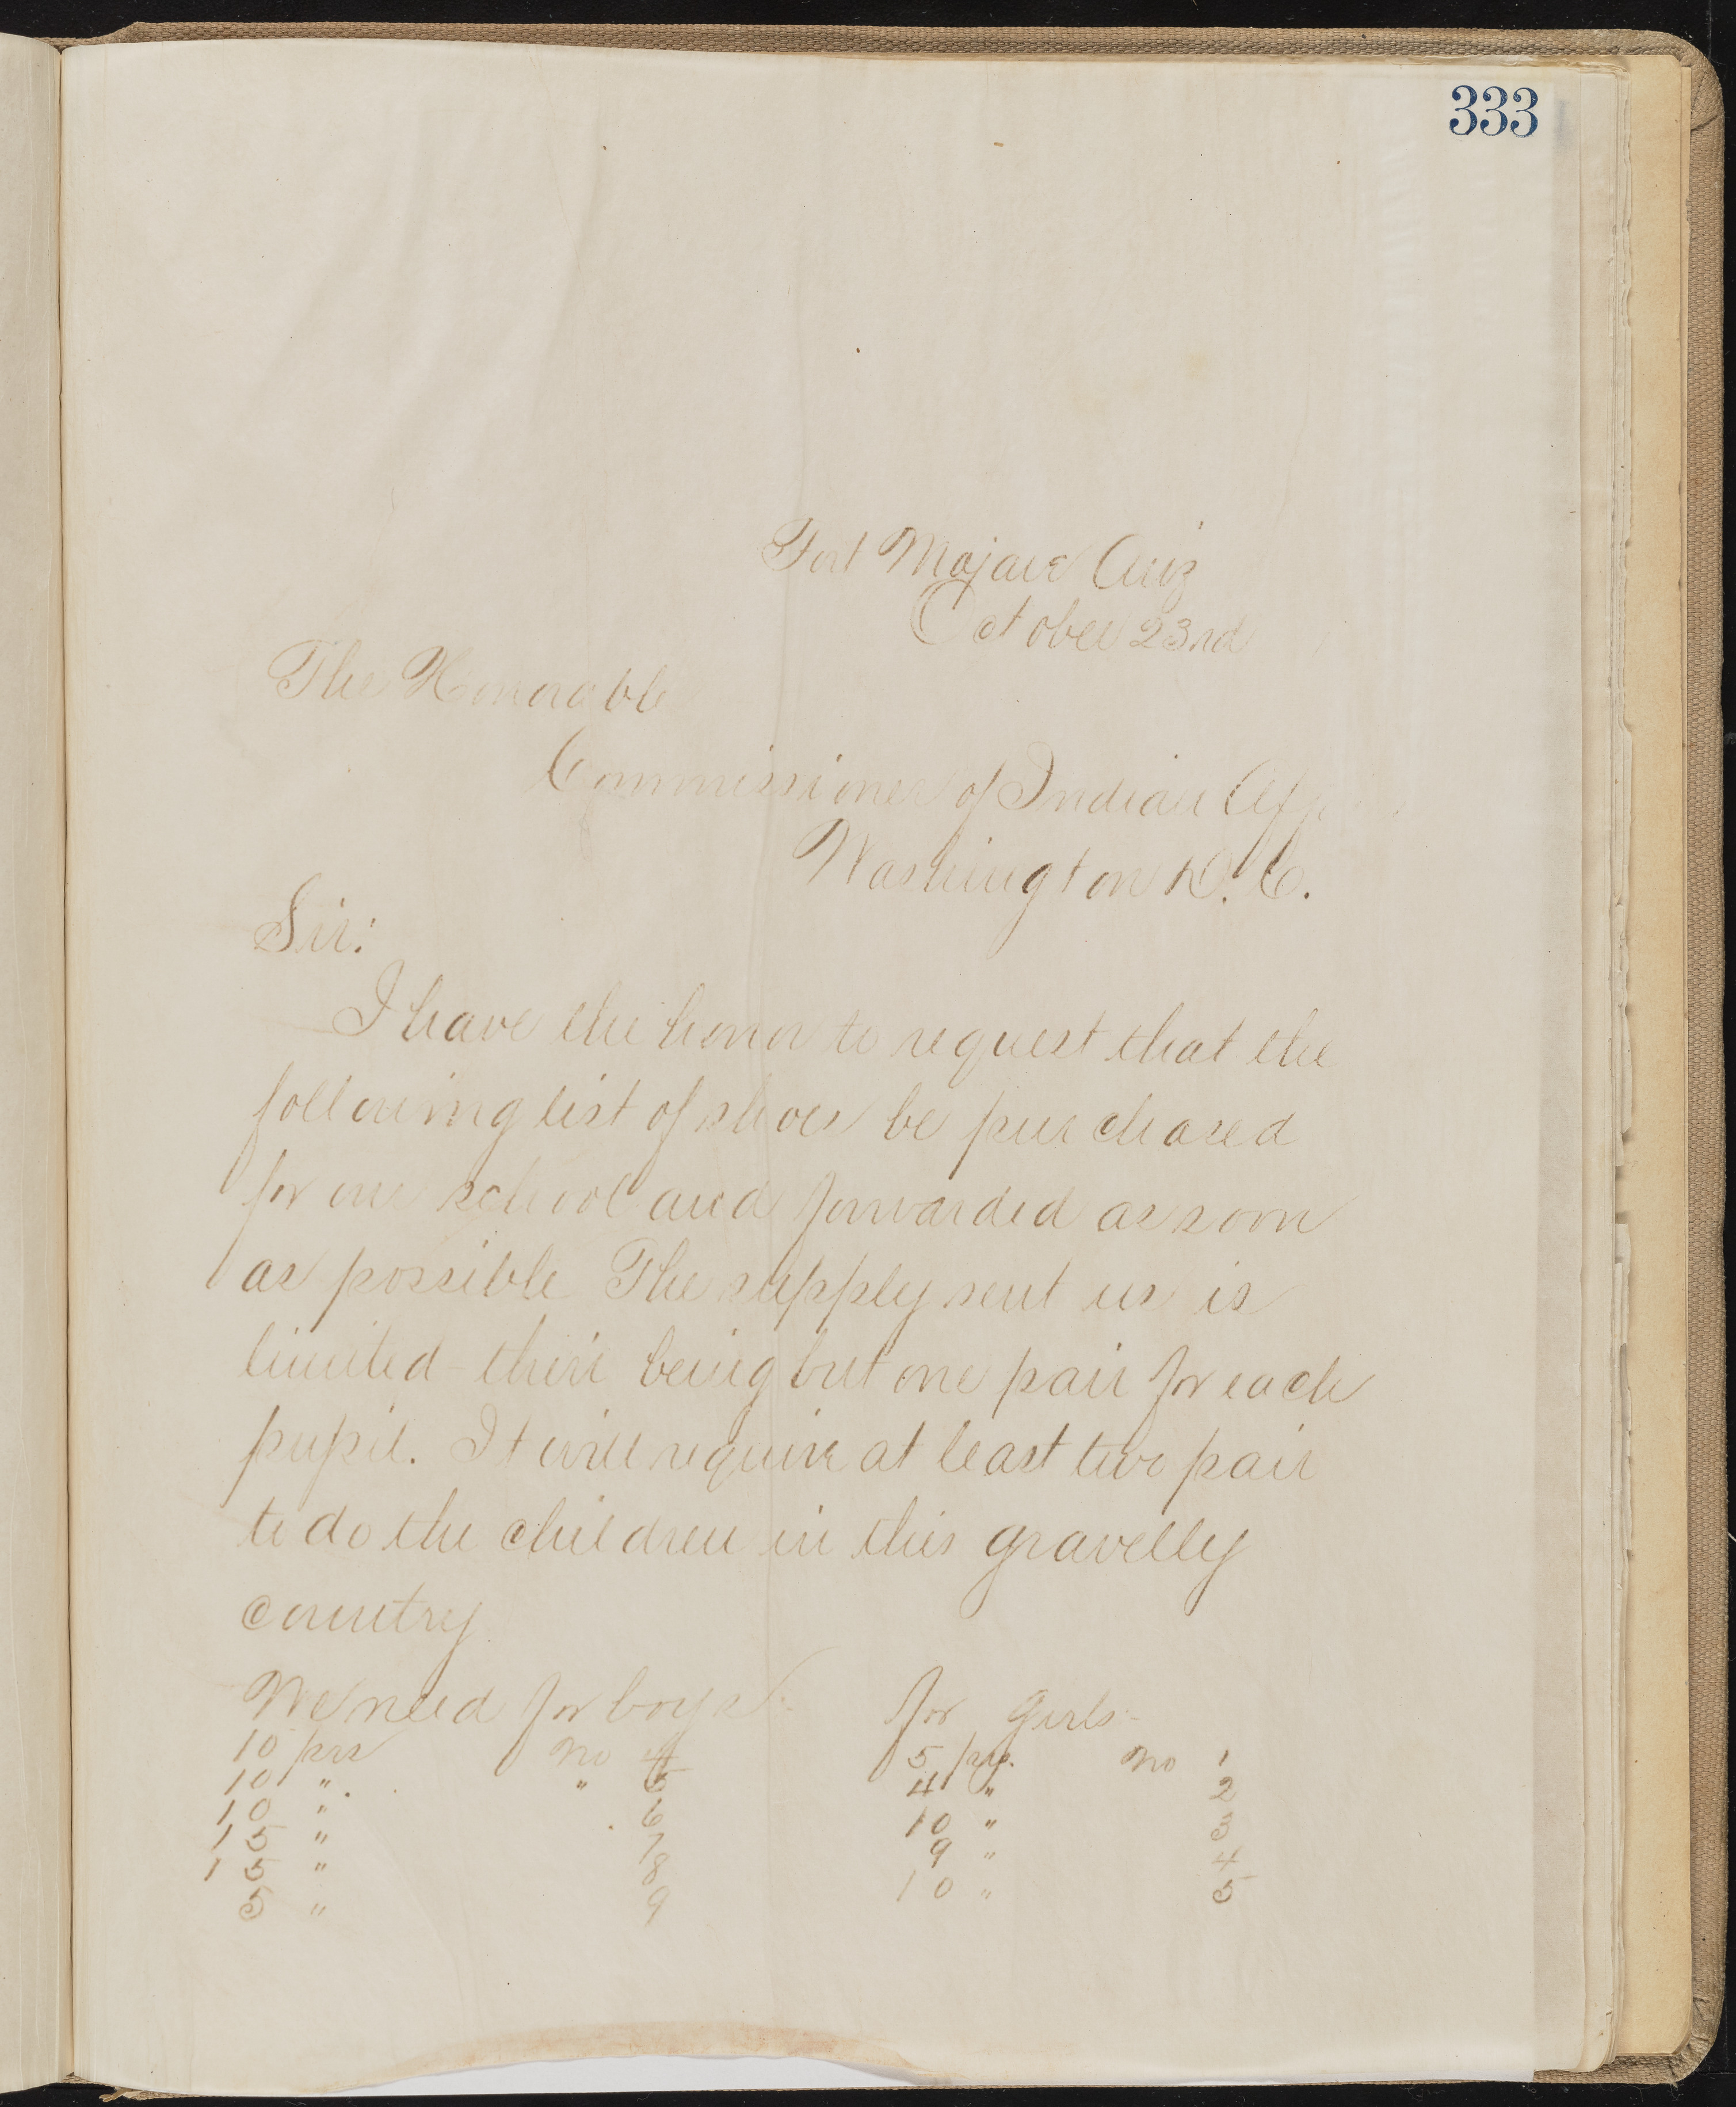 333
Fort Mojave Ariz
October 23rd
The Honorable
Commissioner of Indian Aff
Washington D. C.
Sir:
I have the honor to request that the
following list of shoes be purchased
for our school and forwarded as soon
as possible The supply sent us is
limited - their being but one pair for each
pupil. It will require at least two pair
to do the children in this gravelly
country.
We need for boys - for girls -
10 prs no 4 5 prs. no 1
10 " " 5 4 " 2
10 " 6 10 " 3
15 " 7 9 " 4
15 " 8 10 " 5
5 " 9